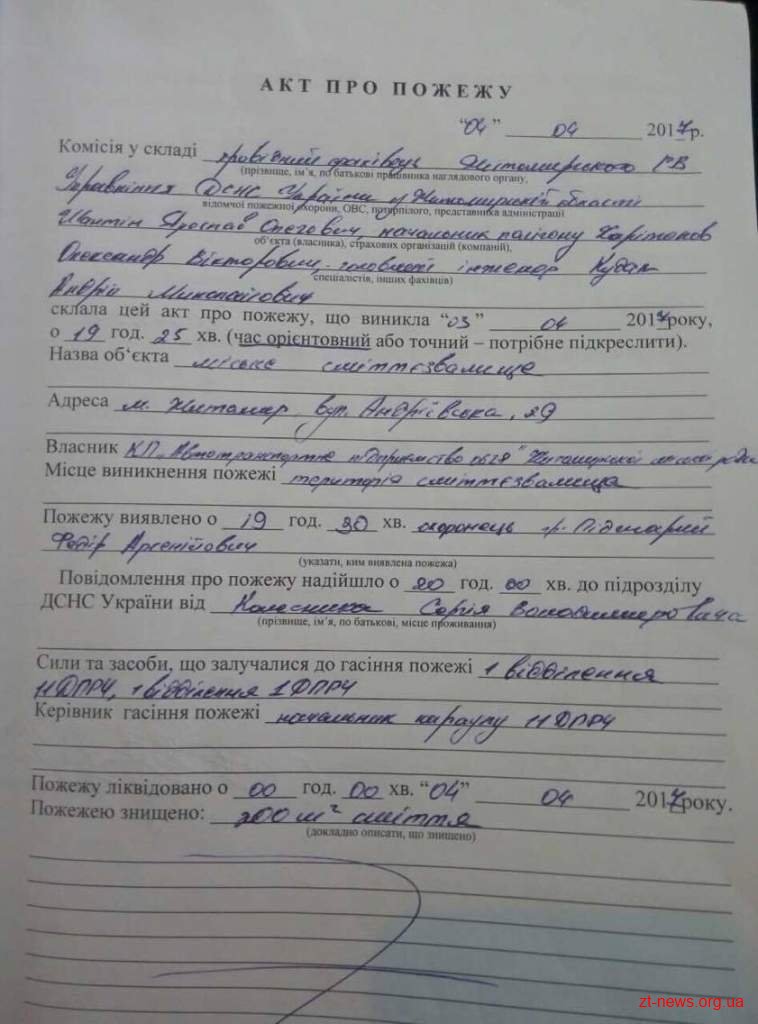 АКТ ПРО ПОЖЕЖУ
“04” 04 2017р.
Комісія у складі провідний фахівець Житомирського РВ
(прізвище, ім’я, по батькові працівника наглядового органу,
Управління ДСНС України у Житомирській області
відомчої пожежної охорони, ОВС, потерпілого, представника адміністрації
Ярослав Олегович, начальник полігону Харітонов
об’єкта (власника), страхових організацій (компаній),
Олександр Вікторович, головний інженер
спеціалістів, інших фахівців)
Андрій Миколайович
склала цей акт про пожежу, що виникла “03” 04 2017року,
о 19 год. 25 хв. (час орієнтовний або точний – потрібне підкреслити).
Назва об‘єкта міське сміттєзвалище
Адреса м. Житомир, вул. Андріївська, 29
Власник КП „Автотранспортне підприємство 0628” Житомирської міської ради
Місце виникнення пожежі територія сміттєзвалища
Пожежу виявлено о 19 год. 30 хв. охоронець гр.
Федір Арсенійович
(указати, ким виявлена пожежа)
Повідомлення про пожежу надійшло о 20 год. 00 хв. до підрозділу
ДСНС України від Колесника Сергія Володимировича
(прізвище, ім’я, по батькові, місце проживання)
Сили та засоби, що залучалися до гасіння пожежі 1 відділення
11ДПРЧ, 1 відділення 1ДПРЧ
Керівник гасіння пожежі начальник караулу 11ДПРЧ
Пожежу ліквідовано о 00 год. 00 хв. “04” 04 2017року.
Пожежею знищено: 200м² сміття
(докладно описати, що знищено)
zt-news.org.ua